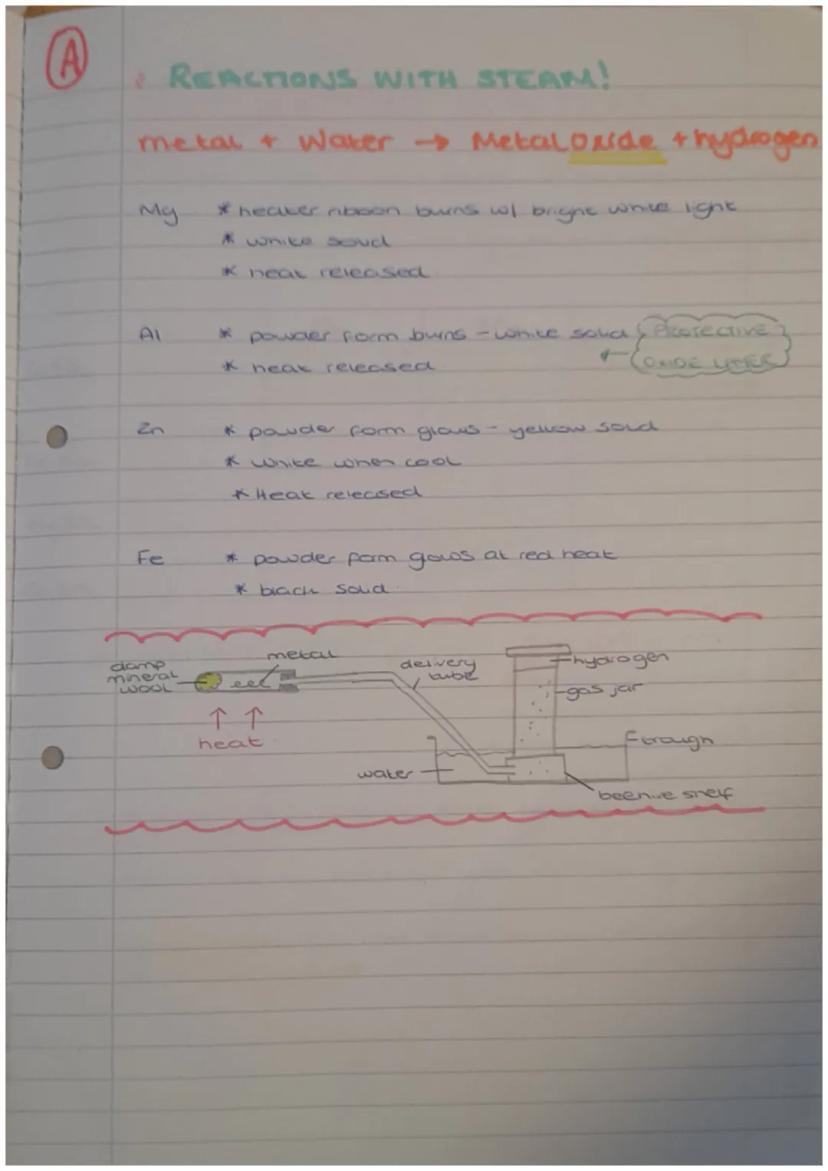 A
REACTIONS WITH STEAM!
metal + Water → Metal Oxide + hydrogen
Mg * heated ribbon burns w/ bright white light
* white solid
* heat released
Al * powder form burns - white solid PROTECTIVE
* heat released OXIDE LAYER
Zn * powder form glows - yellow solid
* white when cool
* Heat released
Fe * powder form glows at red heat
* black solid
damp
mineral
wool
metal
delivery
tube
hydrogen
gas jar
heat
trough
water
beehive shelf